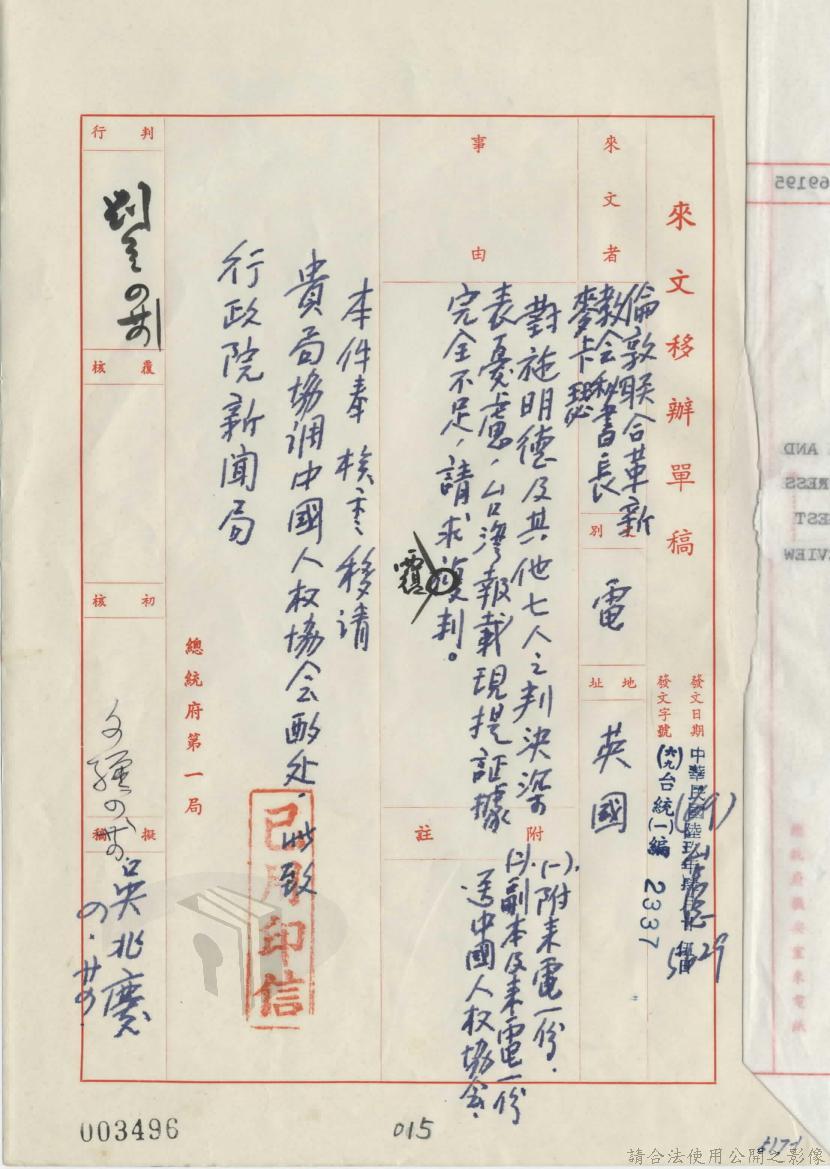 來文移辦單稿
發文日期
中華民國陸玖年
發文字號
(六九)台統(一)編 2337
5629
來文者
倫敦聯合革新
教會秘書長
麥卡瑟
別
電
地址
英國
事由
對施明德及其他七人之判決深
表憂慮,台灣報載現提証據
完全不足,請求複判。
附註
(一).附来電一份.
(二).副本及来電一份
送中國人权協会.
本件奉 核定移請
貴局協调中國人权協会酌处.此致
行政院新闻局
總統府第一局
已用印信
判行
覆核
初核
擬稿
吳兆
003496
015
69195
AND
RESS
EST
VIEW
請合法使用公開之影像